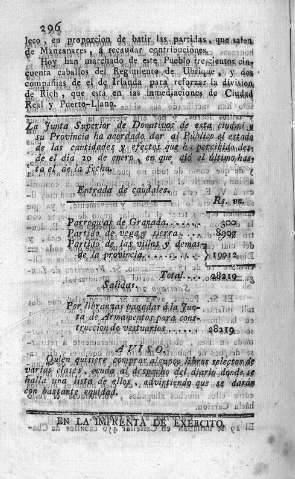 296
lero, en proporcion de batir las partidas, que salen
de Manzanares, á recaudar contribuciones.
Hoy han marchado de este Pueblo trescientos cin-
cuenta caballos del Regimiento de Ubrique, y dos
compañias de el de Irlanda para reforzar la division
de Rich, que está en las inmediaciones de Ciudad
Real y Puerto-Llano.
La Junta Superior de Donativos de esta ciudad y
su Provincia ha acordado dar al Público el estado
de las cantidades y efectos que ha percibido des-
de el dia 20 de enero, en que dió el último, has-
ta el de la fecha.
Entrada de caudales.
Rs. vn.
Parroquias de Granada.......
Partido de vega y sierra....... 8997
Partido de las villas y demas
de la provincia........... 19912
Total.... 28219
Salidas.
Por libranzas pagadas á la Jun-
ta de Armamentos para cons-
truccion de vestuarios....... 28219
AVISO.
Quien quisiere comprar algunos libros selectos de
varias clases, acuda al despacho del diario donde se
halla una lista de ellos, advirtiendo que se darán
con bastante equidad.
EN LA IMPRENTA DE EXÉRCITO.